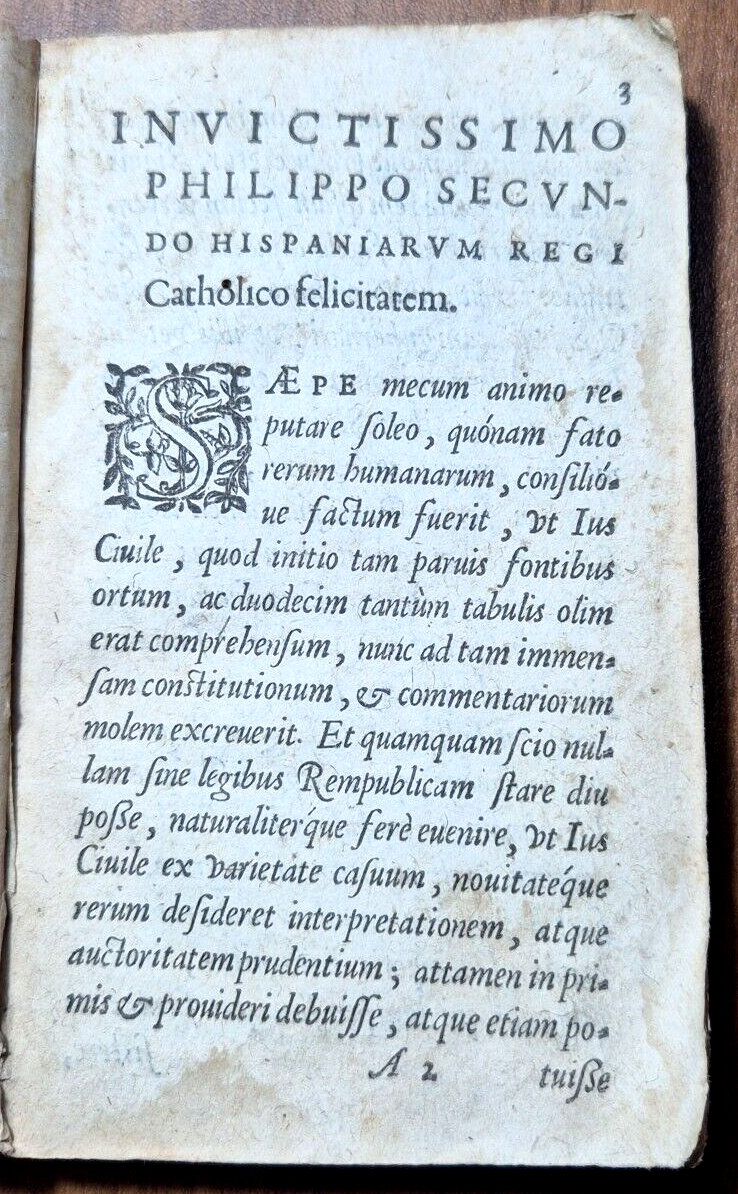 3
INVICTISSIMO
PHILIPPO SECVN-
DO HISPANIARVM REGI
Catholico felicitatem.
SÆPE mecum animo re-
putare ſoleo, quónam fato
rerum humanarum, conſilió-
ue factum fuerit, vt Ius
Ciuile, quod initio tam paruis fontibus
ortum, ac duodecim tantùm tabulis olim
erat comprehenſum, nunc ad tam immen-
ſam conſtitutionum, & commentariorum
molem excreuerit. Et quamquam ſcio nul-
lam ſine legibus Rempublicam ſtare diu
poſſe, naturaliterq́ue ferè euenire, vt Ius
Ciuile ex varietate caſuum, nouitateq́ue
rerum deſideret interpretationem, atque
auctoritatem prudentium; attamen in pri-
mis & prouideri debuiſſe, atque etiam po-
A 2 tuiſſe